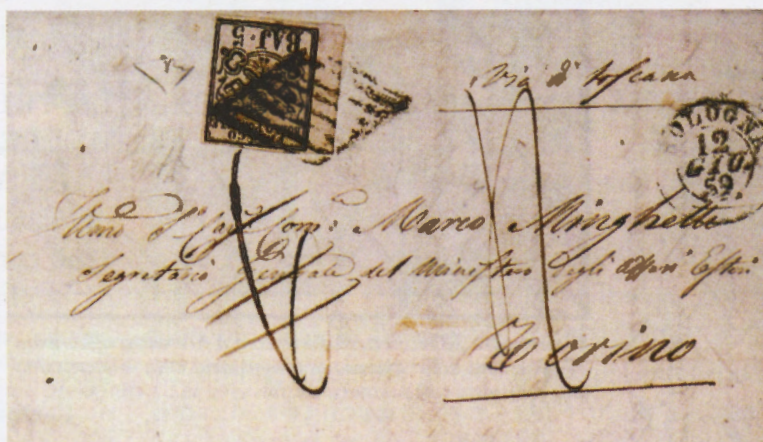 BAJ·5
via di toscana
BOLOGNA
12
GIU
59
Marco Minghetti
Segretario Generale del Ministero degli affari Esteri
Torino